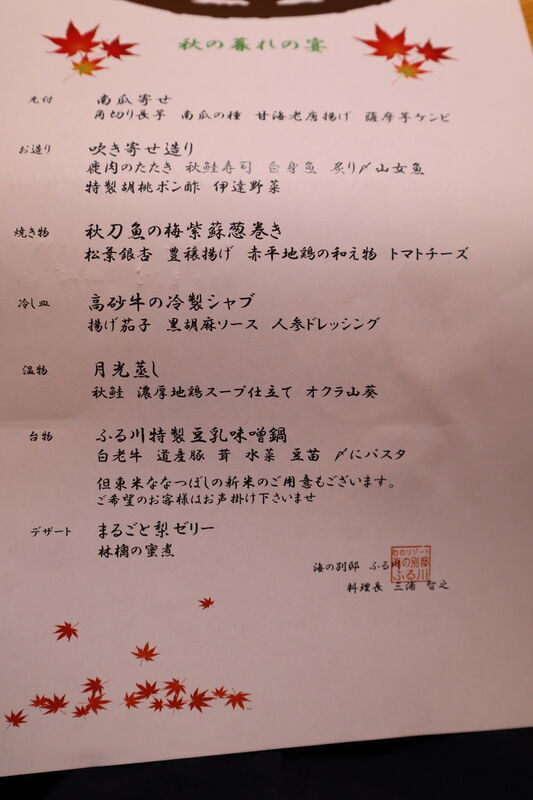 秋の暮れの宴
先付 南瓜寄せ
角切り長芋 南瓜の種 甘海老唐揚げ 薩摩芋ケンピ
お造り 吹き寄せ造り
鹿肉のたたき 秋鮭寿司 白身魚 炙り〆山女魚
特製胡桃ポン酢 伊達野菜
焼き物 秋刀魚の梅紫蘇葱巻き
松葉銀杏 豊穣揚げ 赤平地鶏の和え物 トマトチーズ
冷し皿 高砂牛の冷製シャブ
揚げ茄子 黒胡麻ソース 人参ドレッシング
温物 月光蒸し
秋鮭 濃厚地鶏スープ仕立て オクラ山葵
台物 ふる川特製豆乳味噌鍋
白老牛 道産豚 茸 水菜 豆苗 〆にパスタ
但東米ななつぼしの新米のご用意もございます。
ご希望のお客様はお声掛け下さいませ
デザート まるごと梨ゼリー
林檎の蜜煮
海の別邸 ふる川
料理長 三浦 智之
心のリゾート
海の別邸
ふる川